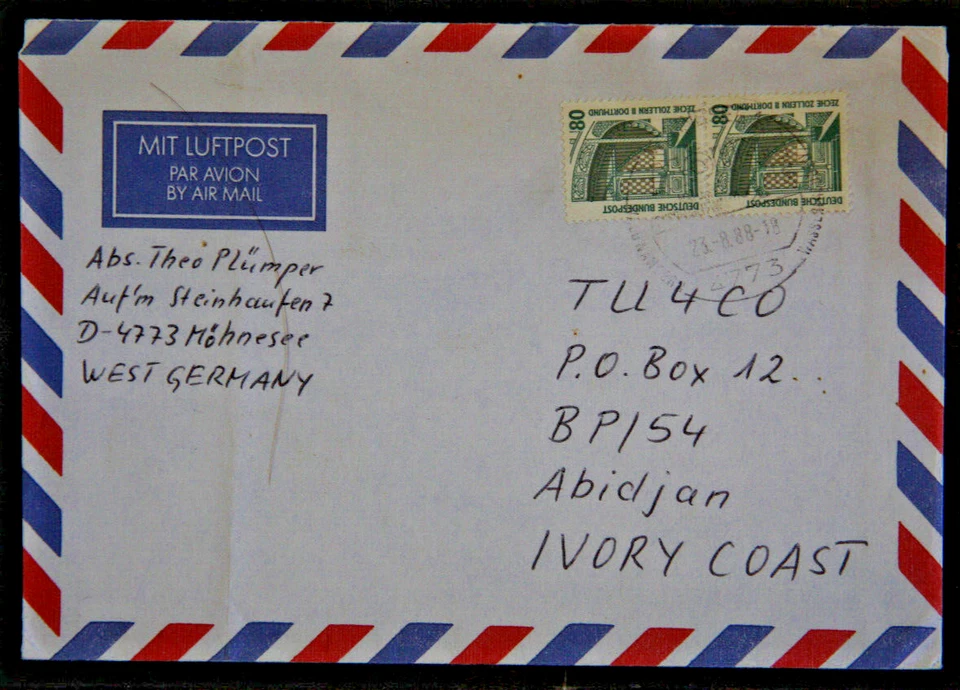 MIT LUFTPOST
PAR AVION
BY AIR MAIL
80
ZECHE ZOLLERN II DORTMUND
DEUTSCHE BUNDESPOST
80
ZECHE ZOLLERN II DORTMUND
DEUTSCHE BUNDESPOST
23.-8.88-18
4773
Abs. Theo Plümper
Auf'm Steinhaufen 7
D-4773 Möhnesee
WEST GERMANY
TU4CO
P.O. Box 12..
BP/54
Abidjan
IVORY COAST